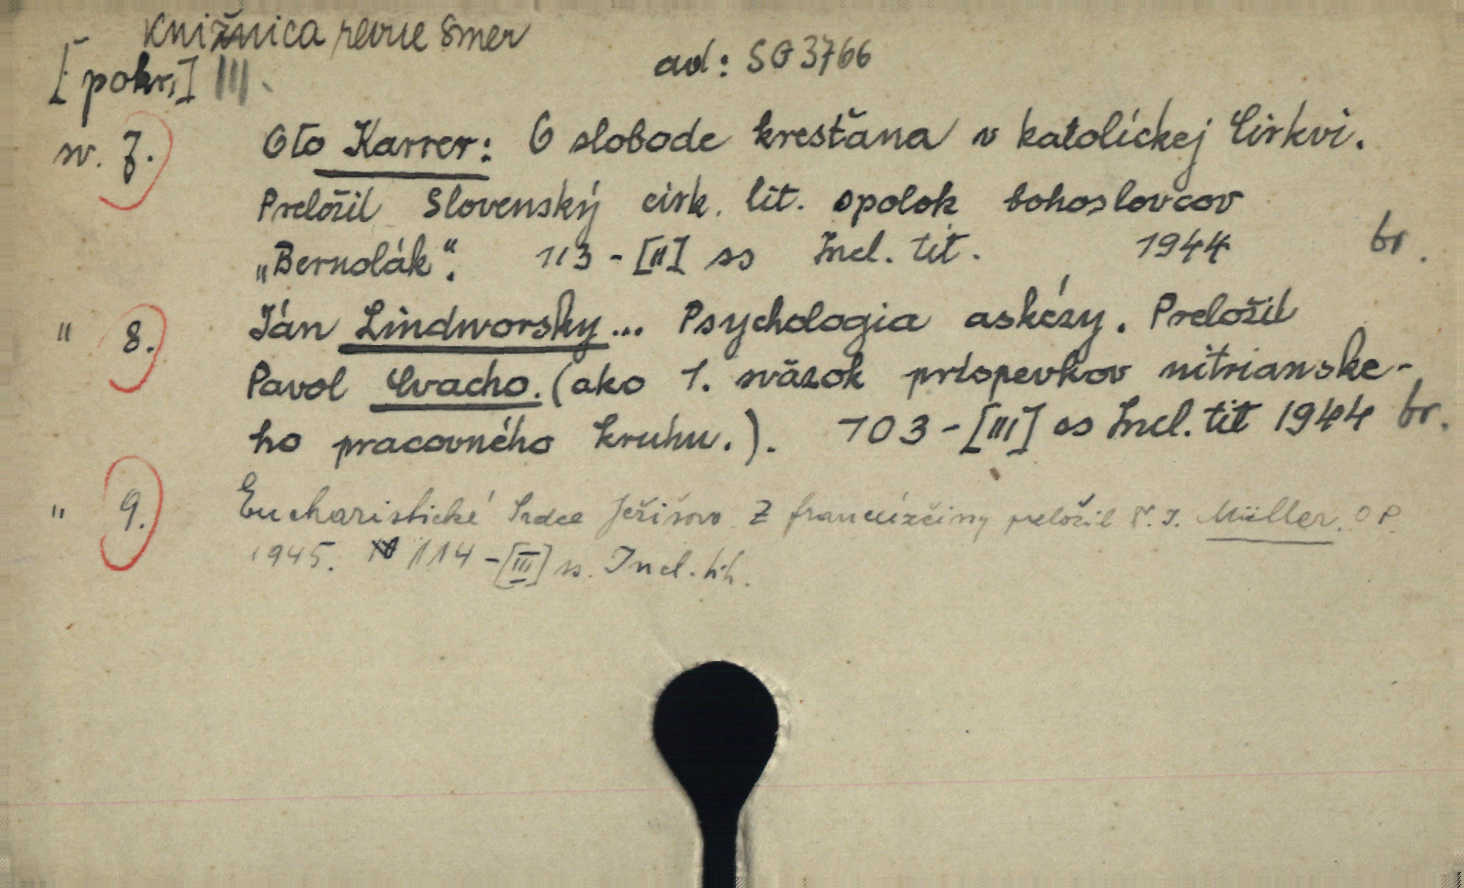 Knižnica revue Smer
[pokr.] III.
ad: SG 3766
sv. 7. Oto Karrer: O slobode kresťana v katolíckej Cirkvi.
Preložil Slovenský cirk. lit. spolok bohoslovcov
„Bernolák“. 113-[II] ss Incl. tit. 1944 br.
" 8. Ján Lindworsky... Psychologia askézy. Preložil
Pavol Čvacho. (ako 1. sväzok príspevkov nitrianske-
ho pracovného kruhu.). 103-[III] ss Incl. tit 1944 br.
" 9. Eucharistické Srdce Ježišovo. Z francúzčiny preložil V. J. Müller. OP.
1945. 114-[III] ss. Incl. tit.